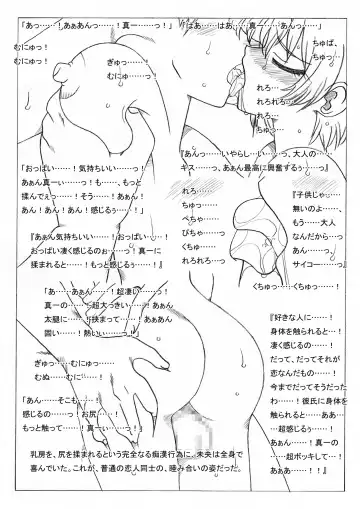 「あっ……！あぁあんっ……！真一……っ！」
むにゅっ！
むにゅっ！
ぎゅっ……っ！
むにゅ……っ！
『はあ……はあ……真一……あんっ……』
ちゅば、
ちゅっ…
れろ…
れろれろ…
れろ…
ちゅっ…
「おっぱい……！気持ちいいっ……！
あぁん真一……っ！も……、もっと
揉んでぇっ……！そう……！あぁん！
あん！あん！あん！感じるぅ……っ！」
『あぁん気持ちいい……！おっぱい……！
おっぱい凄く感じるのぉ……っ！真一に
揉まれると……！もっと感じるぅ……！』
『あんっ……いやらし……いっ……っ、大人の
キス……っ、あぁん最高に興奮するぅ……っ』
れろ……
ちゅっ……
ぺちゃ……
ぴちゃ……っ
くちゅ……
れろれろ……っ
『子供じゃ……
無いのよ……、
もう……大人
なんだから…っ
あん……っ
サイコー……っ』
くちゅっ……！くちゅっ……！
「あ……あぁん……！超凄いっ……！
真一の……超大っきいっ……！あぁん
太腿に……！挟まって……！あぁあん
固いっ……！熱いぃ……っ！」
ぎゅっ……むにゅ……っ
むぬ……むに……！
「あんっ……そこも……っ！
感じるの……っ！お尻……っ！
もっと触って……！真一ぃ……っ！」
『好きな人に……！
身体を触られると…！
凄く感じるの……！
だって、だってそれが
恋なんだもの……！
今までだってそうだった
わ……！彼氏に身体を
触られると……ああ…
…超感じるぅ……！
あぁん……！真一の…
…超ボッキして……！
あぁあ……！！』
乳房を、尻を揉まれるという完全なる痴漢行為に、未央は全身で
喜んでいた。これが、普通の恋人同士の、睦み合いの姿だった。